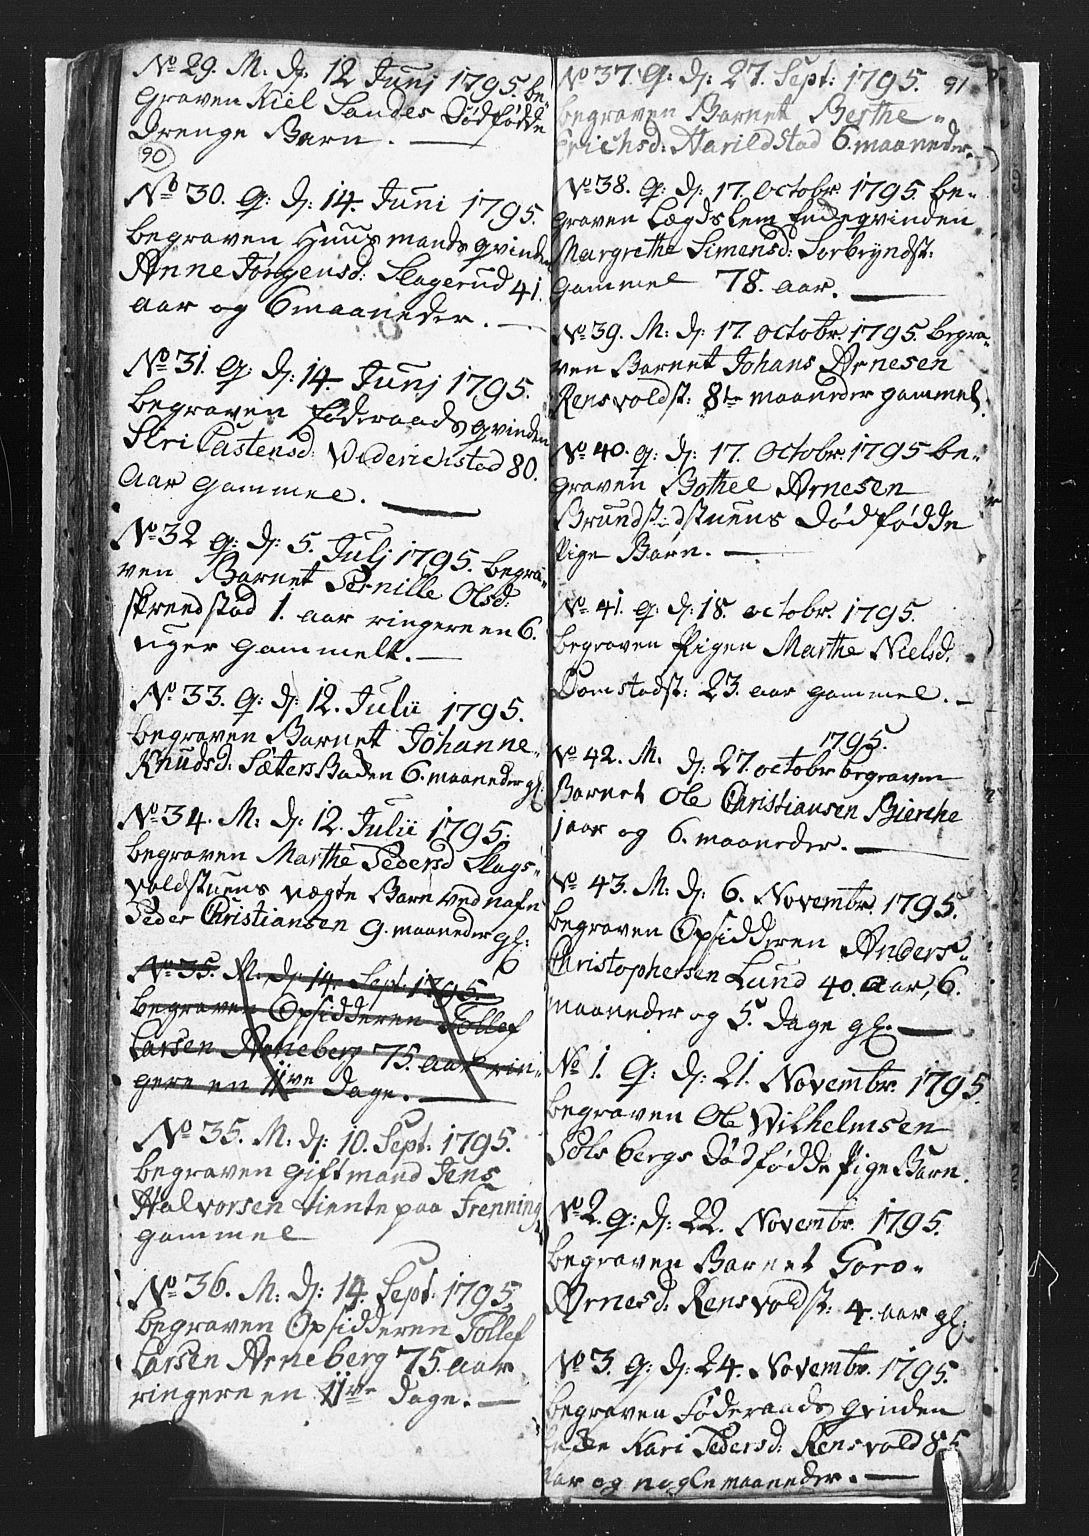 No 29. M. d: 12 Junj 1795. be„
graven Niel Sandes Dødfødde
Drenge Barn.
90
No 30. q: d: 14. Juni 1795.
begraven Huusmands qvinden
Anne Jørgensd: Slagerud 41.
aar og 6 maaneder.
No 31. q: d: 14. Junj 1795.
begraven Føderaads qvinden
Siri Castensd: Diderichstad 80.
Aar gammel.
No 32 q: d: 5. Julj 1795. begra„
ven Barnet Pernille Olsd:
Skrendstad 1. aar ringere en 6.
uger gammelt.
No. 33. q: d: 12. Julii 1795.
begraven Barnet Johanne„
Knudsd: Sæters Baden 6. maaneder gl:
No 34. M: d: 12. Julii 1795.
begraven Marthe Pedersd Slags„
voldstuens uægte Barn ved nafn
Peder Christiansen 9. maaneder gl:
No 35. M. d: 14. Sept. 1795.
begraven Opsidderen Tollef
Larsen Arneberg 75. aar rin„
gere en 11ve dage.
No 35. M. d: 10. Sept. 1795.
begraven giftmand Jens
Halvorsen tiente paa Frenning
gammel
No 36. M. d: 14. Sept: 1795.
begraven Opsidderen Tollef
Larsen Arneberg 75. aar
ringere en 11ve dage.
91
No 37. q: d: 27. Sept: 1795.
begraven Barnet Berthe„
Erichsd: Harildstad 6. maaneder.
No 38. q: d: 17. Octobr. 1795. be„
graven Lægdslem Enkeqvinden
Margrethe Simensd: Sorbryndst:
gammel 78. aar.
No 39. M. d: 17. Octobr. 1795. begra„
ven Barnet Johans Arnesen
Rensvoldst: 8te maaneder gammel.
No 40. q: d: 17. Octobr. 1795 be„
graven Bothel Arnesen
Brundstadstuens dødfødde
Pige Barn.
No 41. q: d: 18. octobr. 1795.
begraven Pigen Marthe Nielsd:
Domstadst: 23. aar gammel.
1795.
No 42. M. d: 27. octobr begraven
Barnet Ole Christiansen Bierche
1 aar og 6. maaneder.
No 43. M. d: 6. Novembr. 1795.
begraven Opsidderen Anders
Christophersen Lund 40. aar, 6.
maaneder og 5. dage gl.
No 1. q: d: 21. Novembr. 1795.
begraven Ole Wilhelmsen
Solsbergs dødfødde Pige Barn.
No 2. q: d: 22. Novembr. 1795.
begraven Barnet Goro„
Arnesd: Rensvoldst: 4. aar gl:
No 3. q: d: 24. Novembr. 1795.
begraven Føderaads qvinden
Kari Pedersd: Rensvold 85
aar og nogle maaneder.